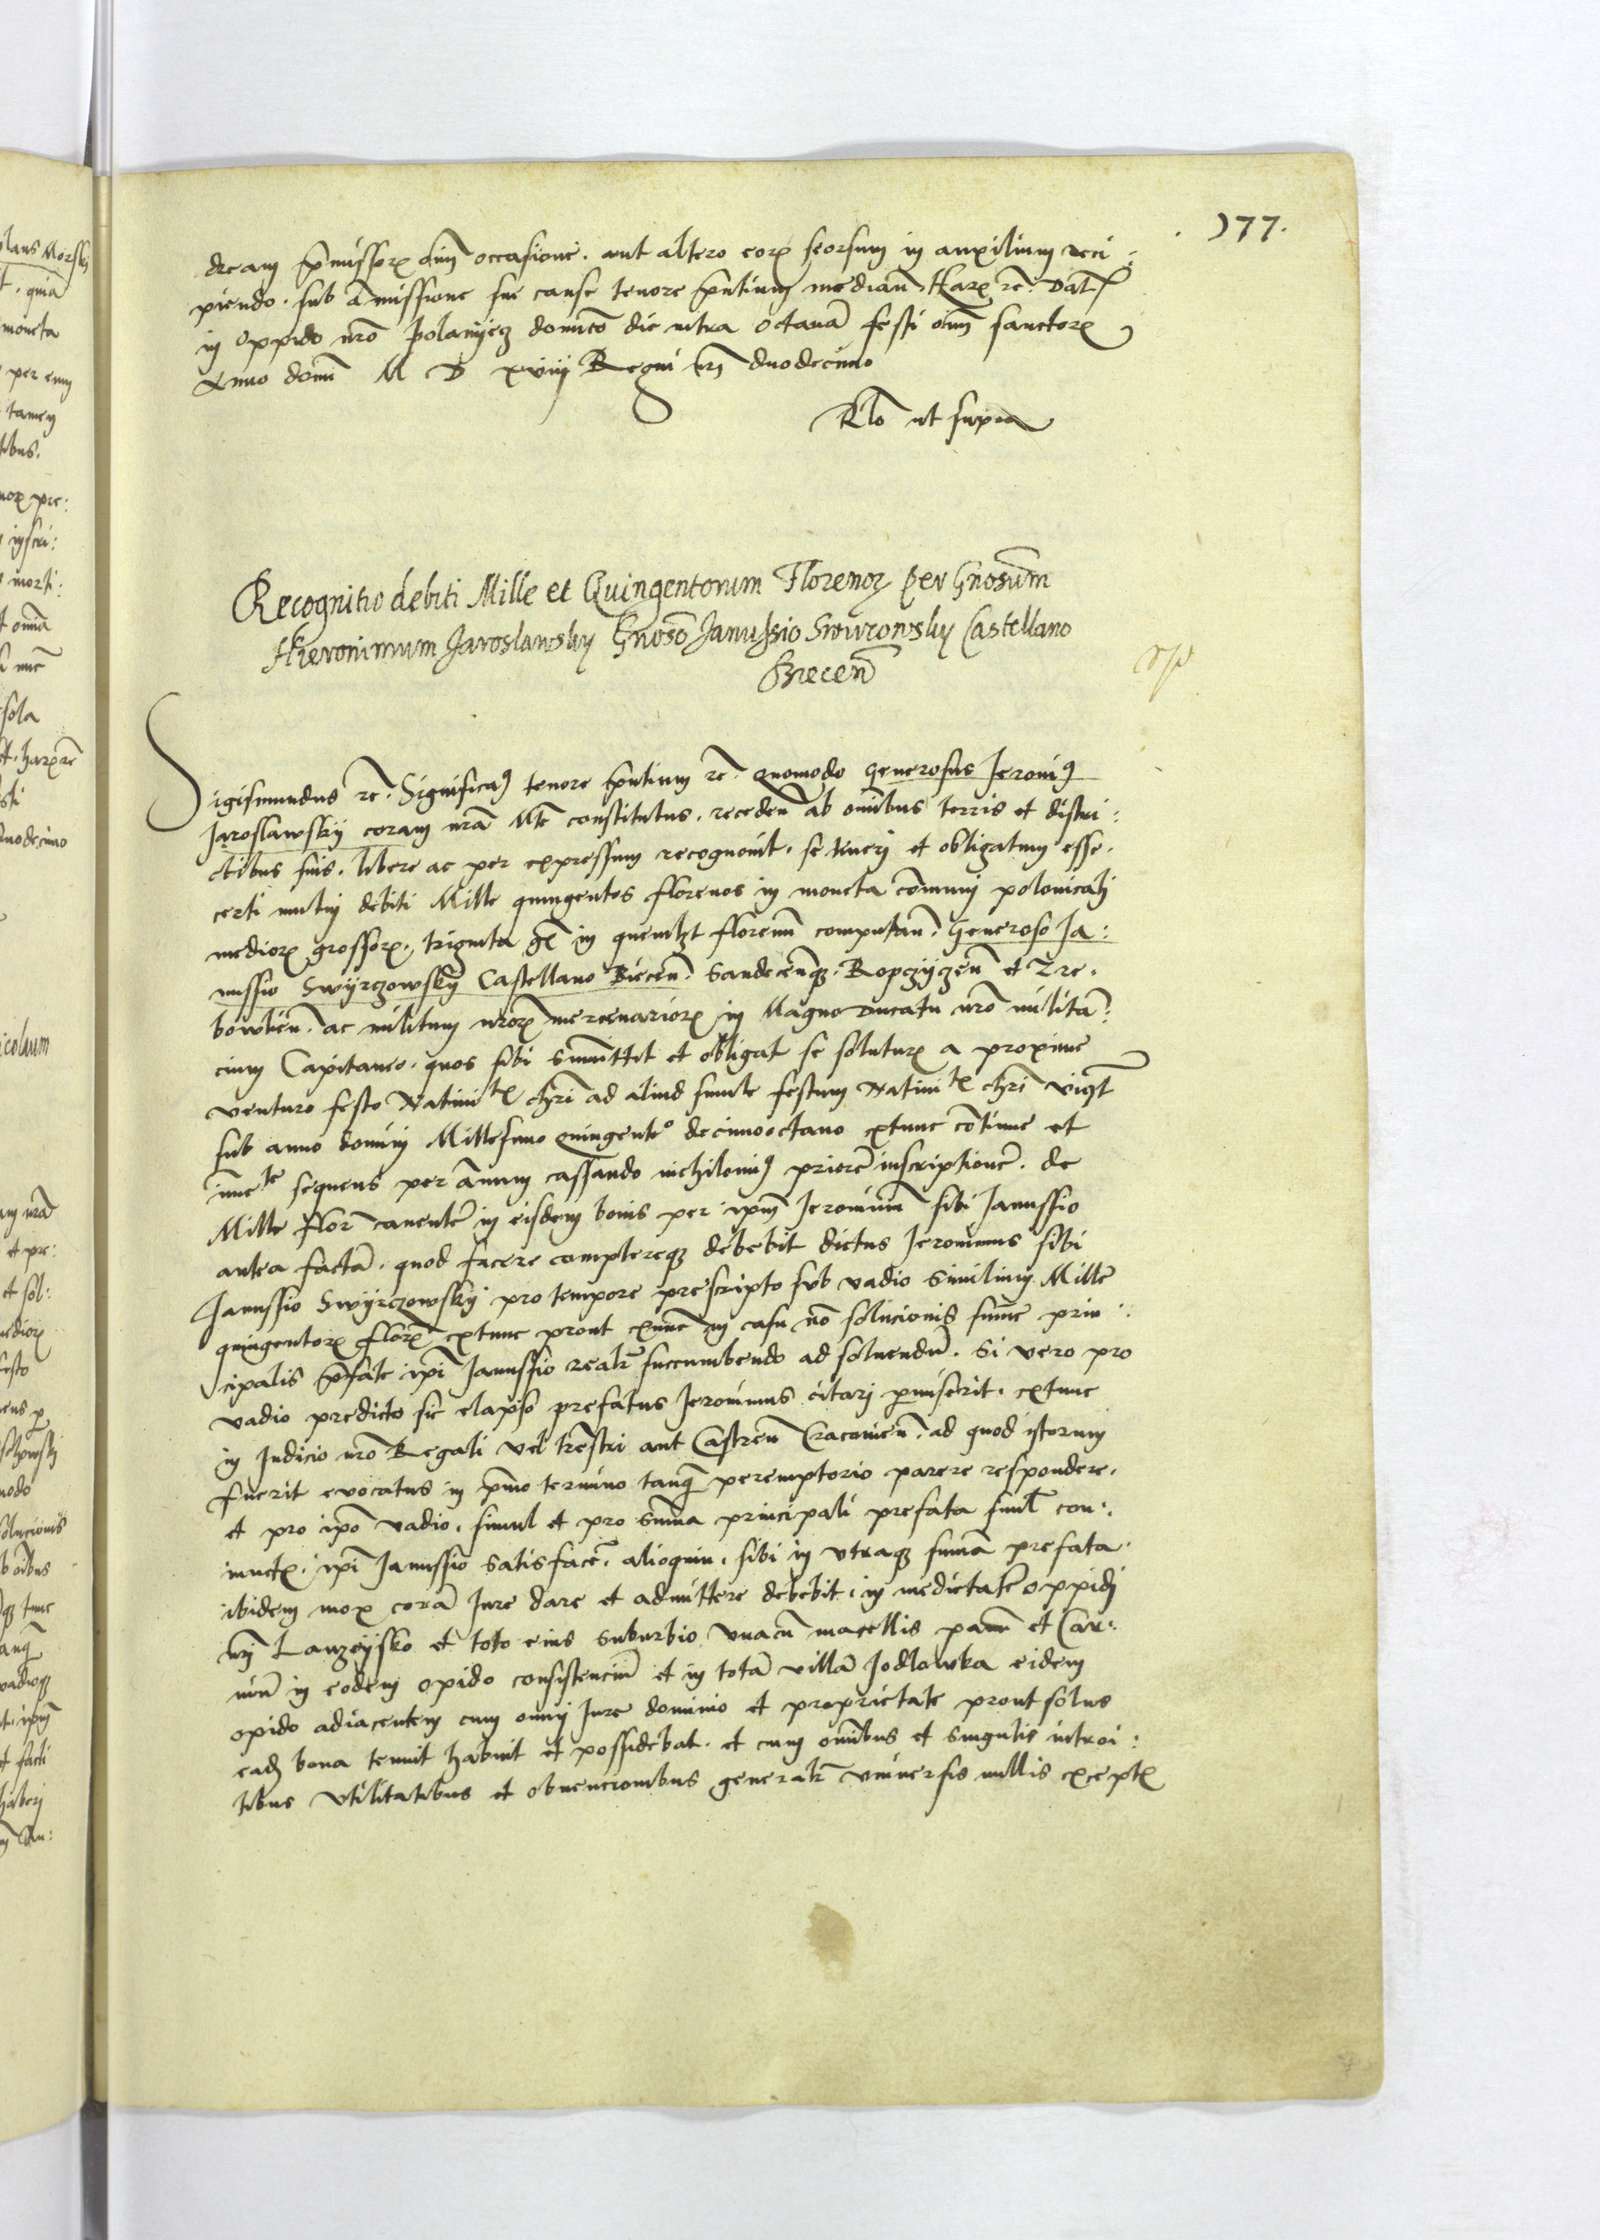 177.
dream p̃missorȝ om̃ occasione. aut altero eorȝ seorsum in auxilium reci:
piendo. sub amissione sue cause tenore p̃ntium median̄. Harȝ rc̄. Dat̃
in oppido nr̃o Polanijecz domĩco die infra octauã festi om̃ sanctorȝ
Anno domĩ M D xviij Regni nr̃i duodecimo
Rl̃o ut supra
Recognitio debiti Mille et Quingentorum Florenoȝ per Gnosum̃
Hieronimum Jaroslawsky Gnoso Janussio Swirczowsky Castellano
Biecen̄
Sigismundus rc̄. Significaꝯ tenore p̃ntium rc̄. quomodo generosus Jeroniꝯ
Jaroslawskij coram nr̃a Mte constitutus. receden̄ ab omĩbus terris et distri:
ctibus suis. libere ac per expressum recognouit. se teneri et obligatum esse.
certi mutui debiti Mille quingentos florenos in moneta com̃uni polonicali
mediorȝ grossorȝ. triginta gr̃ in quemlꝫt florenũ computan̄. Generoso Ja:
nussio Swijrczowskij Castellano Biecen̄. Sandecen̄qꝫ. Ropczijczen̄ et Tre.
bowlien̄. ac militum nr̃orȝ mercenariorȝ in Magno ducatu nr̃o militã:
cium Capitaneo. quos sibi summittit et obligat se soluturȝ a proxime
venturo festo Natiuitȝ chr̃i ad aliud simile festum Natiuitȝ chr̃i
sub anno domini Millesimo quingenteo decimooctauo extunc cõtinue et
imetē sequens per annum cassando nichilomiꝯ priorẽ inscriptionẽ. de
Mille flor̃ cauentẽ in eisdem bonis per ip̃m Jeronimũ sibi Janussio
antea factã. quod facere complereqꝫ debebit dictus Jeronimus sibi
Janussio Swijrczowskij pro tempore prescripto sub vadio similium Mille
quingentorȝ florȝ extunc prout exnunc in casu nõ solucionis sum̃e prin:
cipalis p̃fate ip̃i Janussio realr̃ succumbendo ad soluendũ. Si vero pro
vadio predicto sic elapso prefatus Jeronimus citari p̱miserit. extunc
in Judicio nr̃o Regali vel terr̃estri aut Castren̄ Cracouien̄. ad quod istorum
fuerit evocatus in p̃mo termino tanqᷓ peremptorio parere respondere.
et pro ip̃o vadio. simul et pro sum̃a principali prefata siml̃ con:
iunctȝ. ip̃i Janussio satisfacẽ. alioquin. sibi in vtraqꝫ sum̃a prefata.
ibidem mox corã Jure dare et admittere debebit. in medietatẽ oppidi
sui Lanzeijsko et toto eius suburbio vnacũ macellis panũ et Car:
niũ in eodem opido consistenciũ et in totã villã Jodlowka eidem
opido adiacentem cum omni Jure dominio et proprietate prout solus
eadꝫ bona tenuit habuit et possidebat. et cum omĩbus et singulis introi:
tibus vtilitatibus et obuencionibus generalr̃ vniuersis nullis exceptȝ